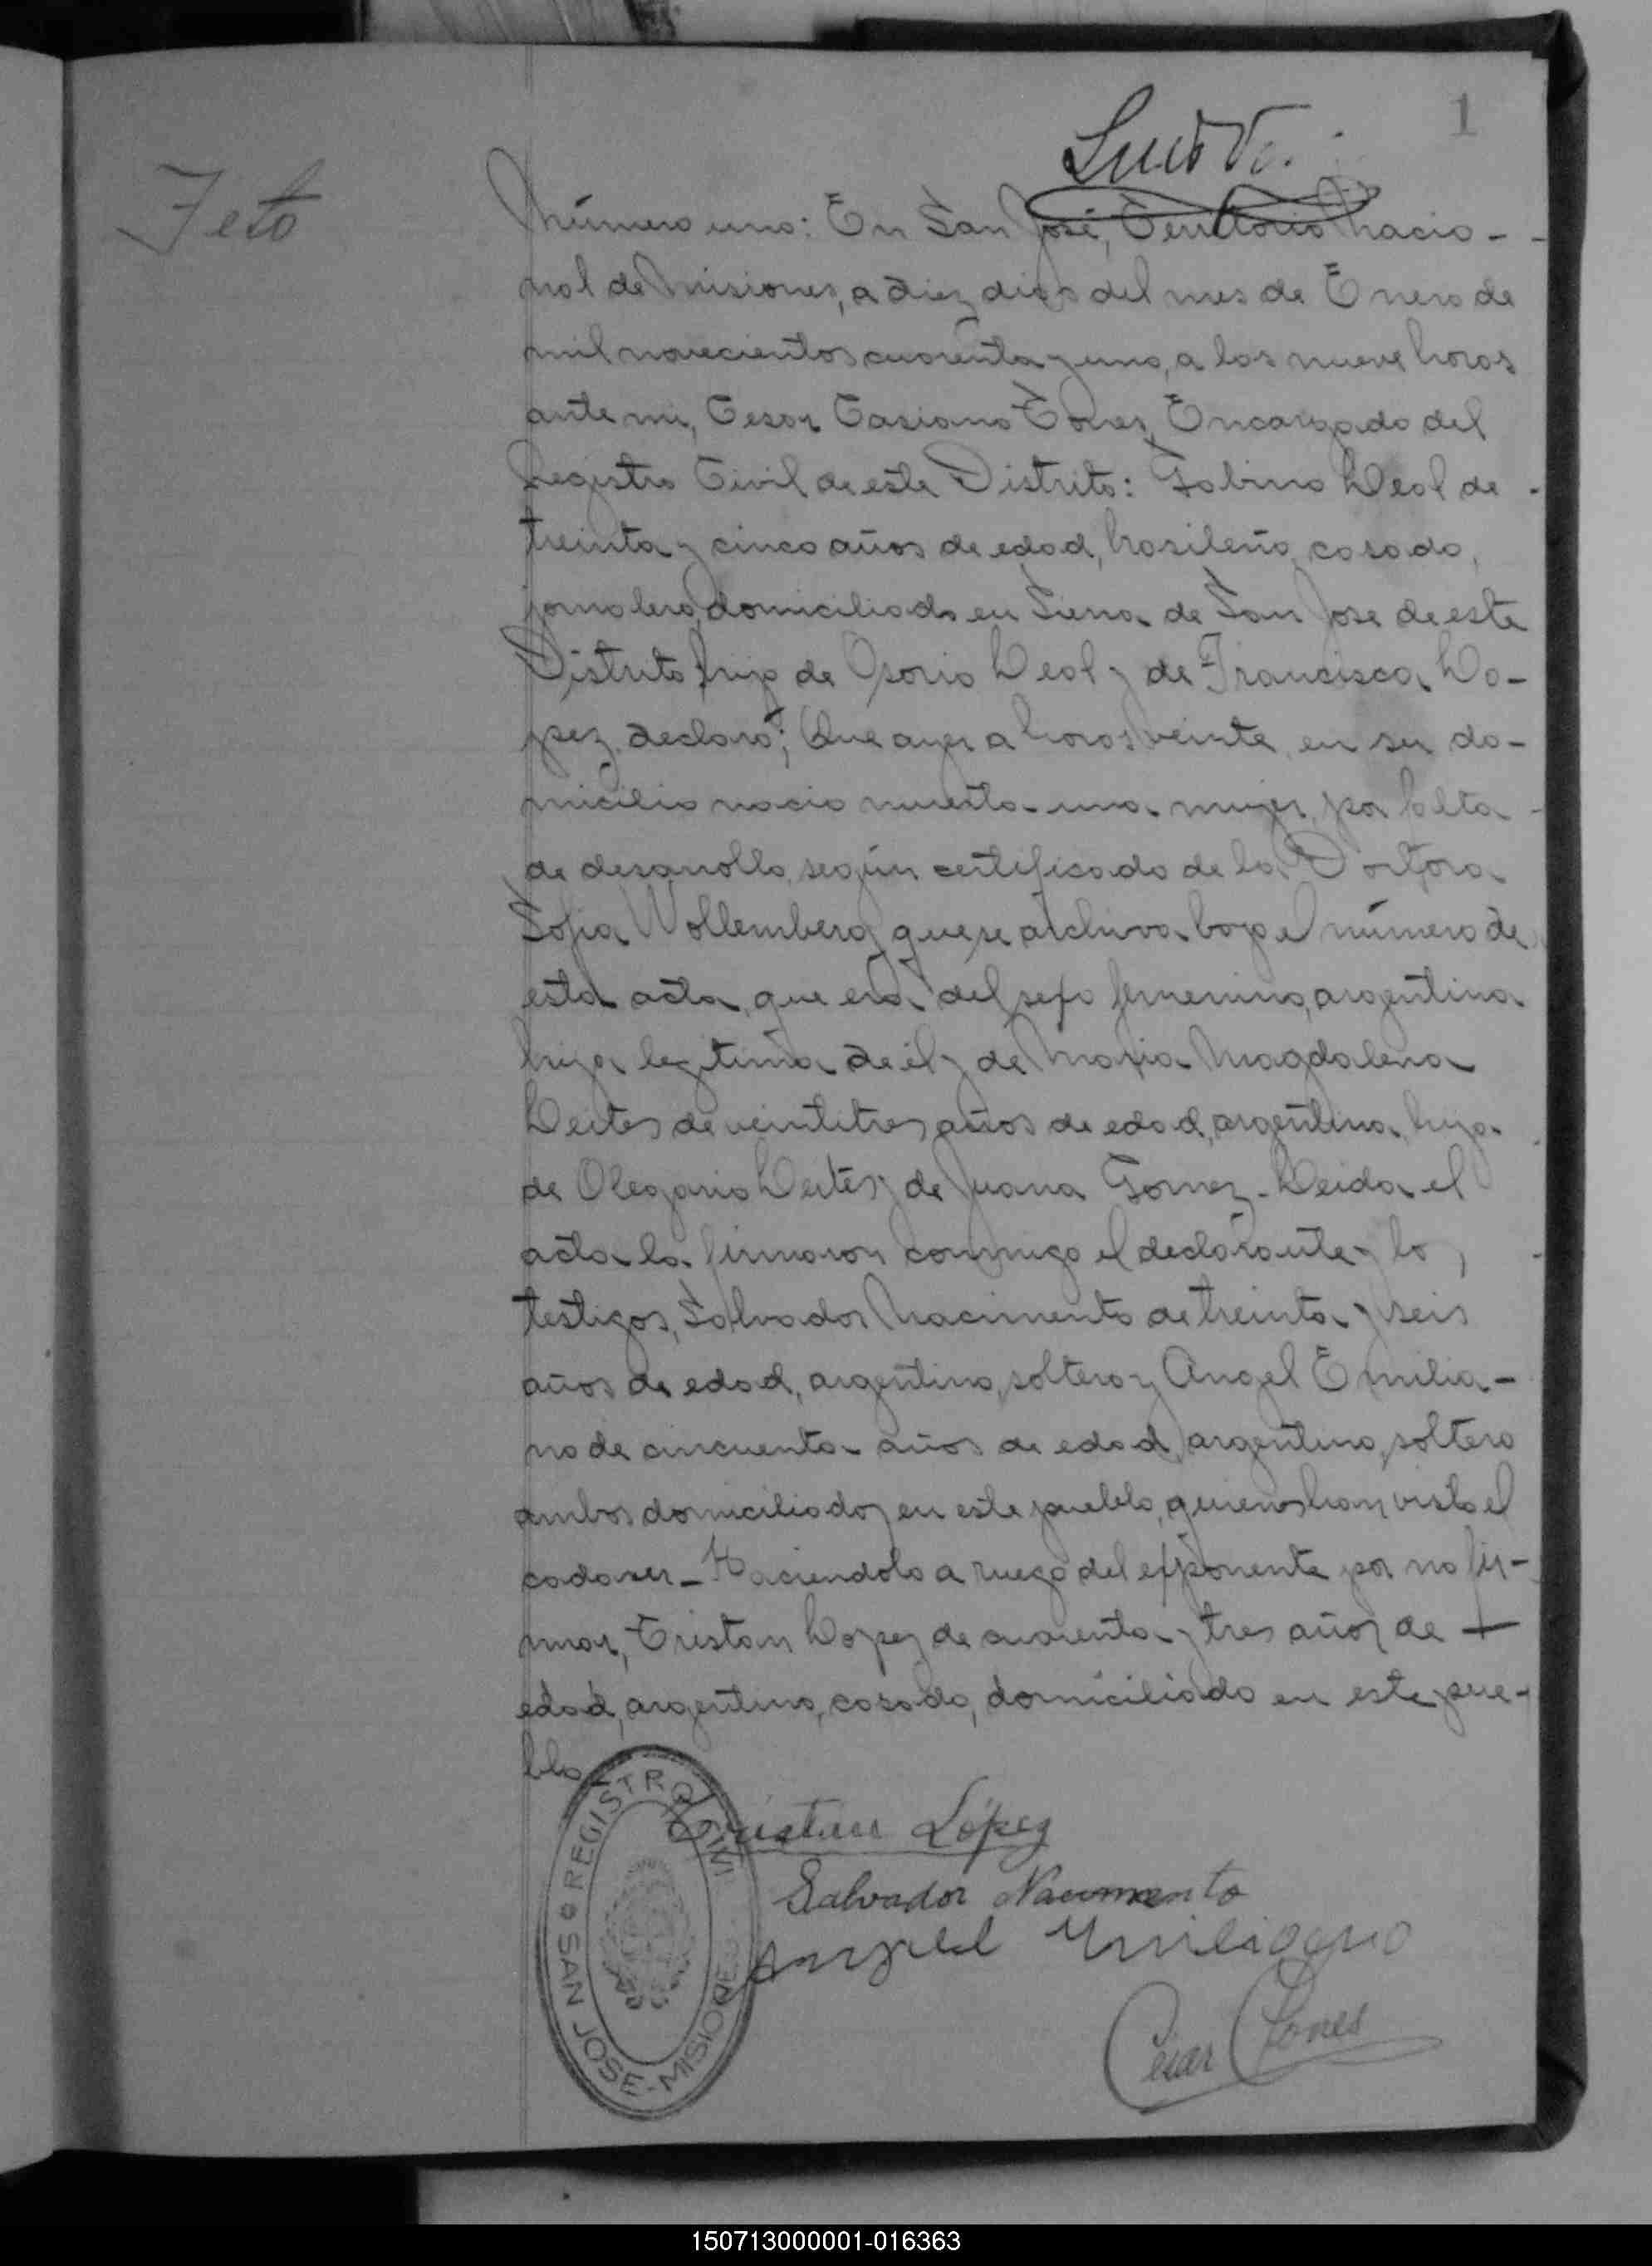 1
Feto
Número uno: En San José, Territorio Nacio-
nal de Misiones, a diez dias del mes de Enero de
mil novecientos cuarenta y uno, a las nueve horas
ante mi, Cesar Casiano Torres, Encargado del
Registro Civil de este Distrito: Gabino Leal de
treinta y cinco años de edad, brasileño, casado,
jornalero, domiciliado en Sierra de San Jose de este
Distrito, hijo de Osorio Leal y de Francisca Lo-
pez, declaró; Que ayer a horas veinte, en su do-
micilio nacio muerta una mujer, por falta
de desarrollo, según certificado de la Doctora
Sofia Wollemberg, que se archiva bajo el número de
esta acta, que era del sexo femenino, argentina
hija legitima de él y de Maria Magdalena
Leites de veintitres años de edad, argentina, hija
de Olegario Leites y de Juana Gomez - Leida el
acta la firmaron conmigo el declarante y los
testigos, Salvador Nacimento de treinta y seis
años de edad, argentino, soltero y Angel Emilia-
no de cincuenta años de edad, argentino, soltero
ambos domiciliados en este pueblo, quienes han visto el
cadaver - Haciendolo a ruego del exponente por no fir-
mar, Tristan Lopez de cuarenta y tres años de
edad, argentino, casado, domiciliado en este pue-
blo -
Tristan López
Salvador Nacimento
Angel Emiliano
Cesar C Torres
REGISTRO CIVIL
SAN JOSE - MISIONES
150713000001-016363